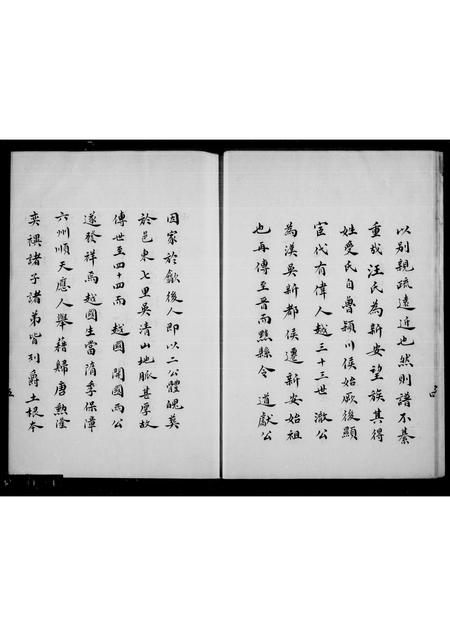 以別親疏遠近也然則譜不綦
重哉汪氏為新安望族其得
姓受氏自魯潁川侯始厥後顯
宦代有偉人越三十三世澈公
為漢吳新都侯遷新安始祖
也再傳至晉而黟縣令道獻公
因家於歙後人即以二公體魄奠
於邑東七里吳清山地脈甚厚故
傳世至四十四而越國開國兩公
遂發祥焉越國生當隋季保漳
六州順天應人舉藉歸唐勲隆
奕禩諸子諸弟皆列爵土根本